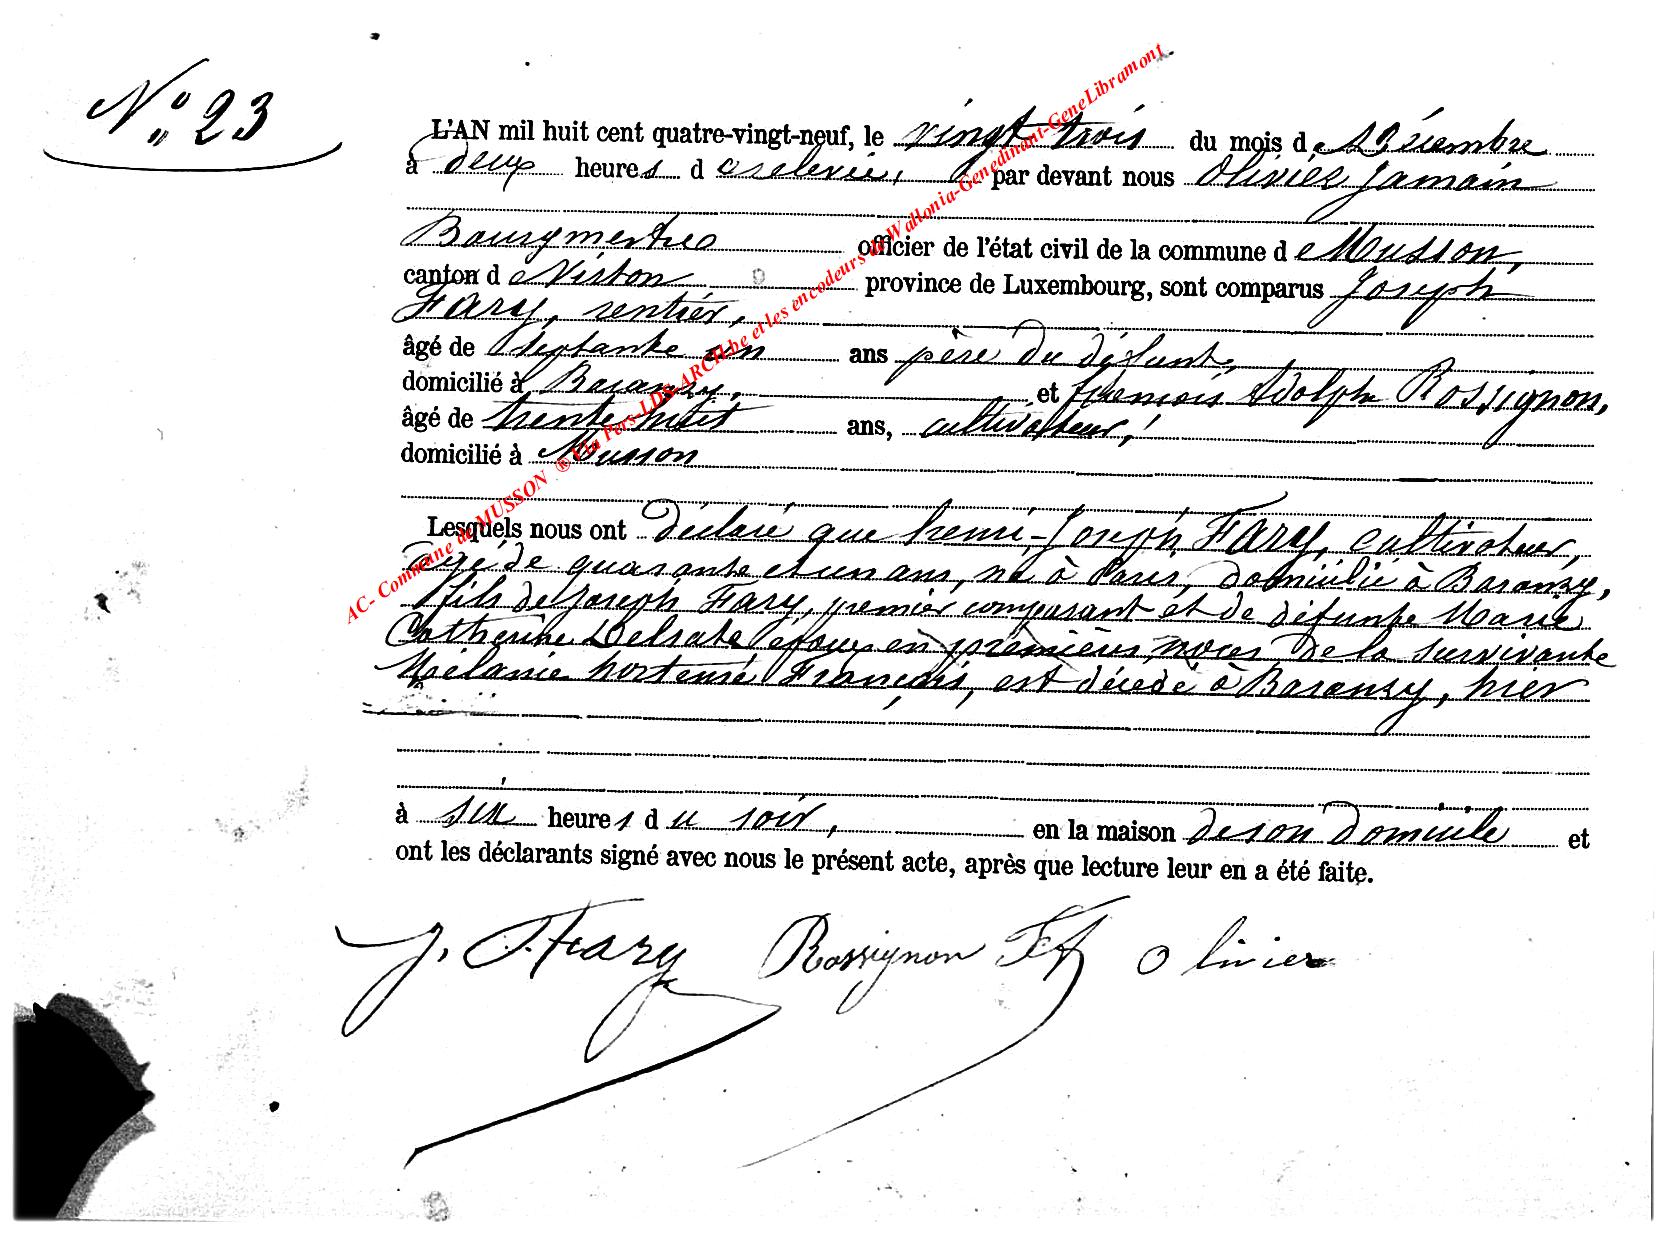 N° 23
L'AN mil huit cent quatre-vingt-neuf, le vingt trois du mois de Décembre
à deux heures de relevée, par devant nous Olivier Jamain
Bourgmestre officier de l'état civil de la commune de Musson,
canton de Virton province de Luxembourg, sont comparus Joseph
Fary, rentier,
âgé de septante un ans père du défunt,
domicilié à Baranzy, et françois Adolphe Rossignon,
âgé de trente huit ans, cultivateur,
domicilié à Musson
Lesquels nous ont déclaré que henri-Joseph Fary, cultivateur,
âgé de quarante et un ans, né à Paris, domicilié à Baranzy,
fils de Joseph Fary, premier comparant et de défunte Marie
Catherine Delrate époux en premières noces de la survivante
Mélanie hortense François, est décédé à Baranzy, hier
à six heures du soir, en la maison de son domicile et
ont les déclarants signé avec nous le présent acte, après que lecture leur en a été faite.
J. Fary Rossignon FA Olivier
AC- Commune de MUSSON ® Via Pers-LDS-ARCH.be et les encodeurs de Wallonia-Genedinant-GeneLibramont